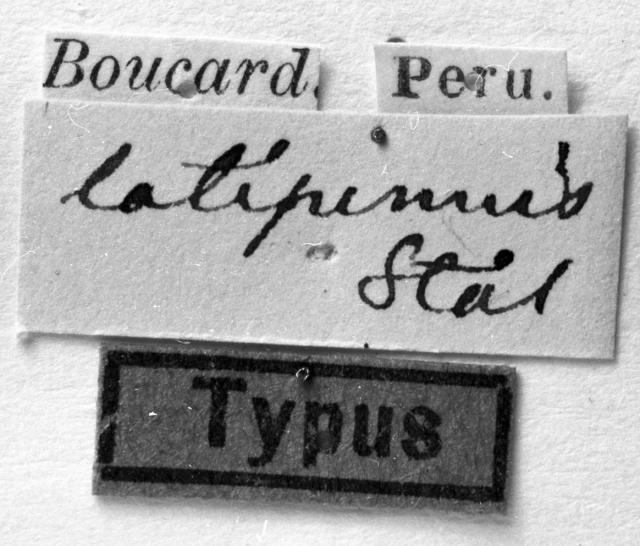 Boucard.
Peru.
latipennis
Stål
Typus